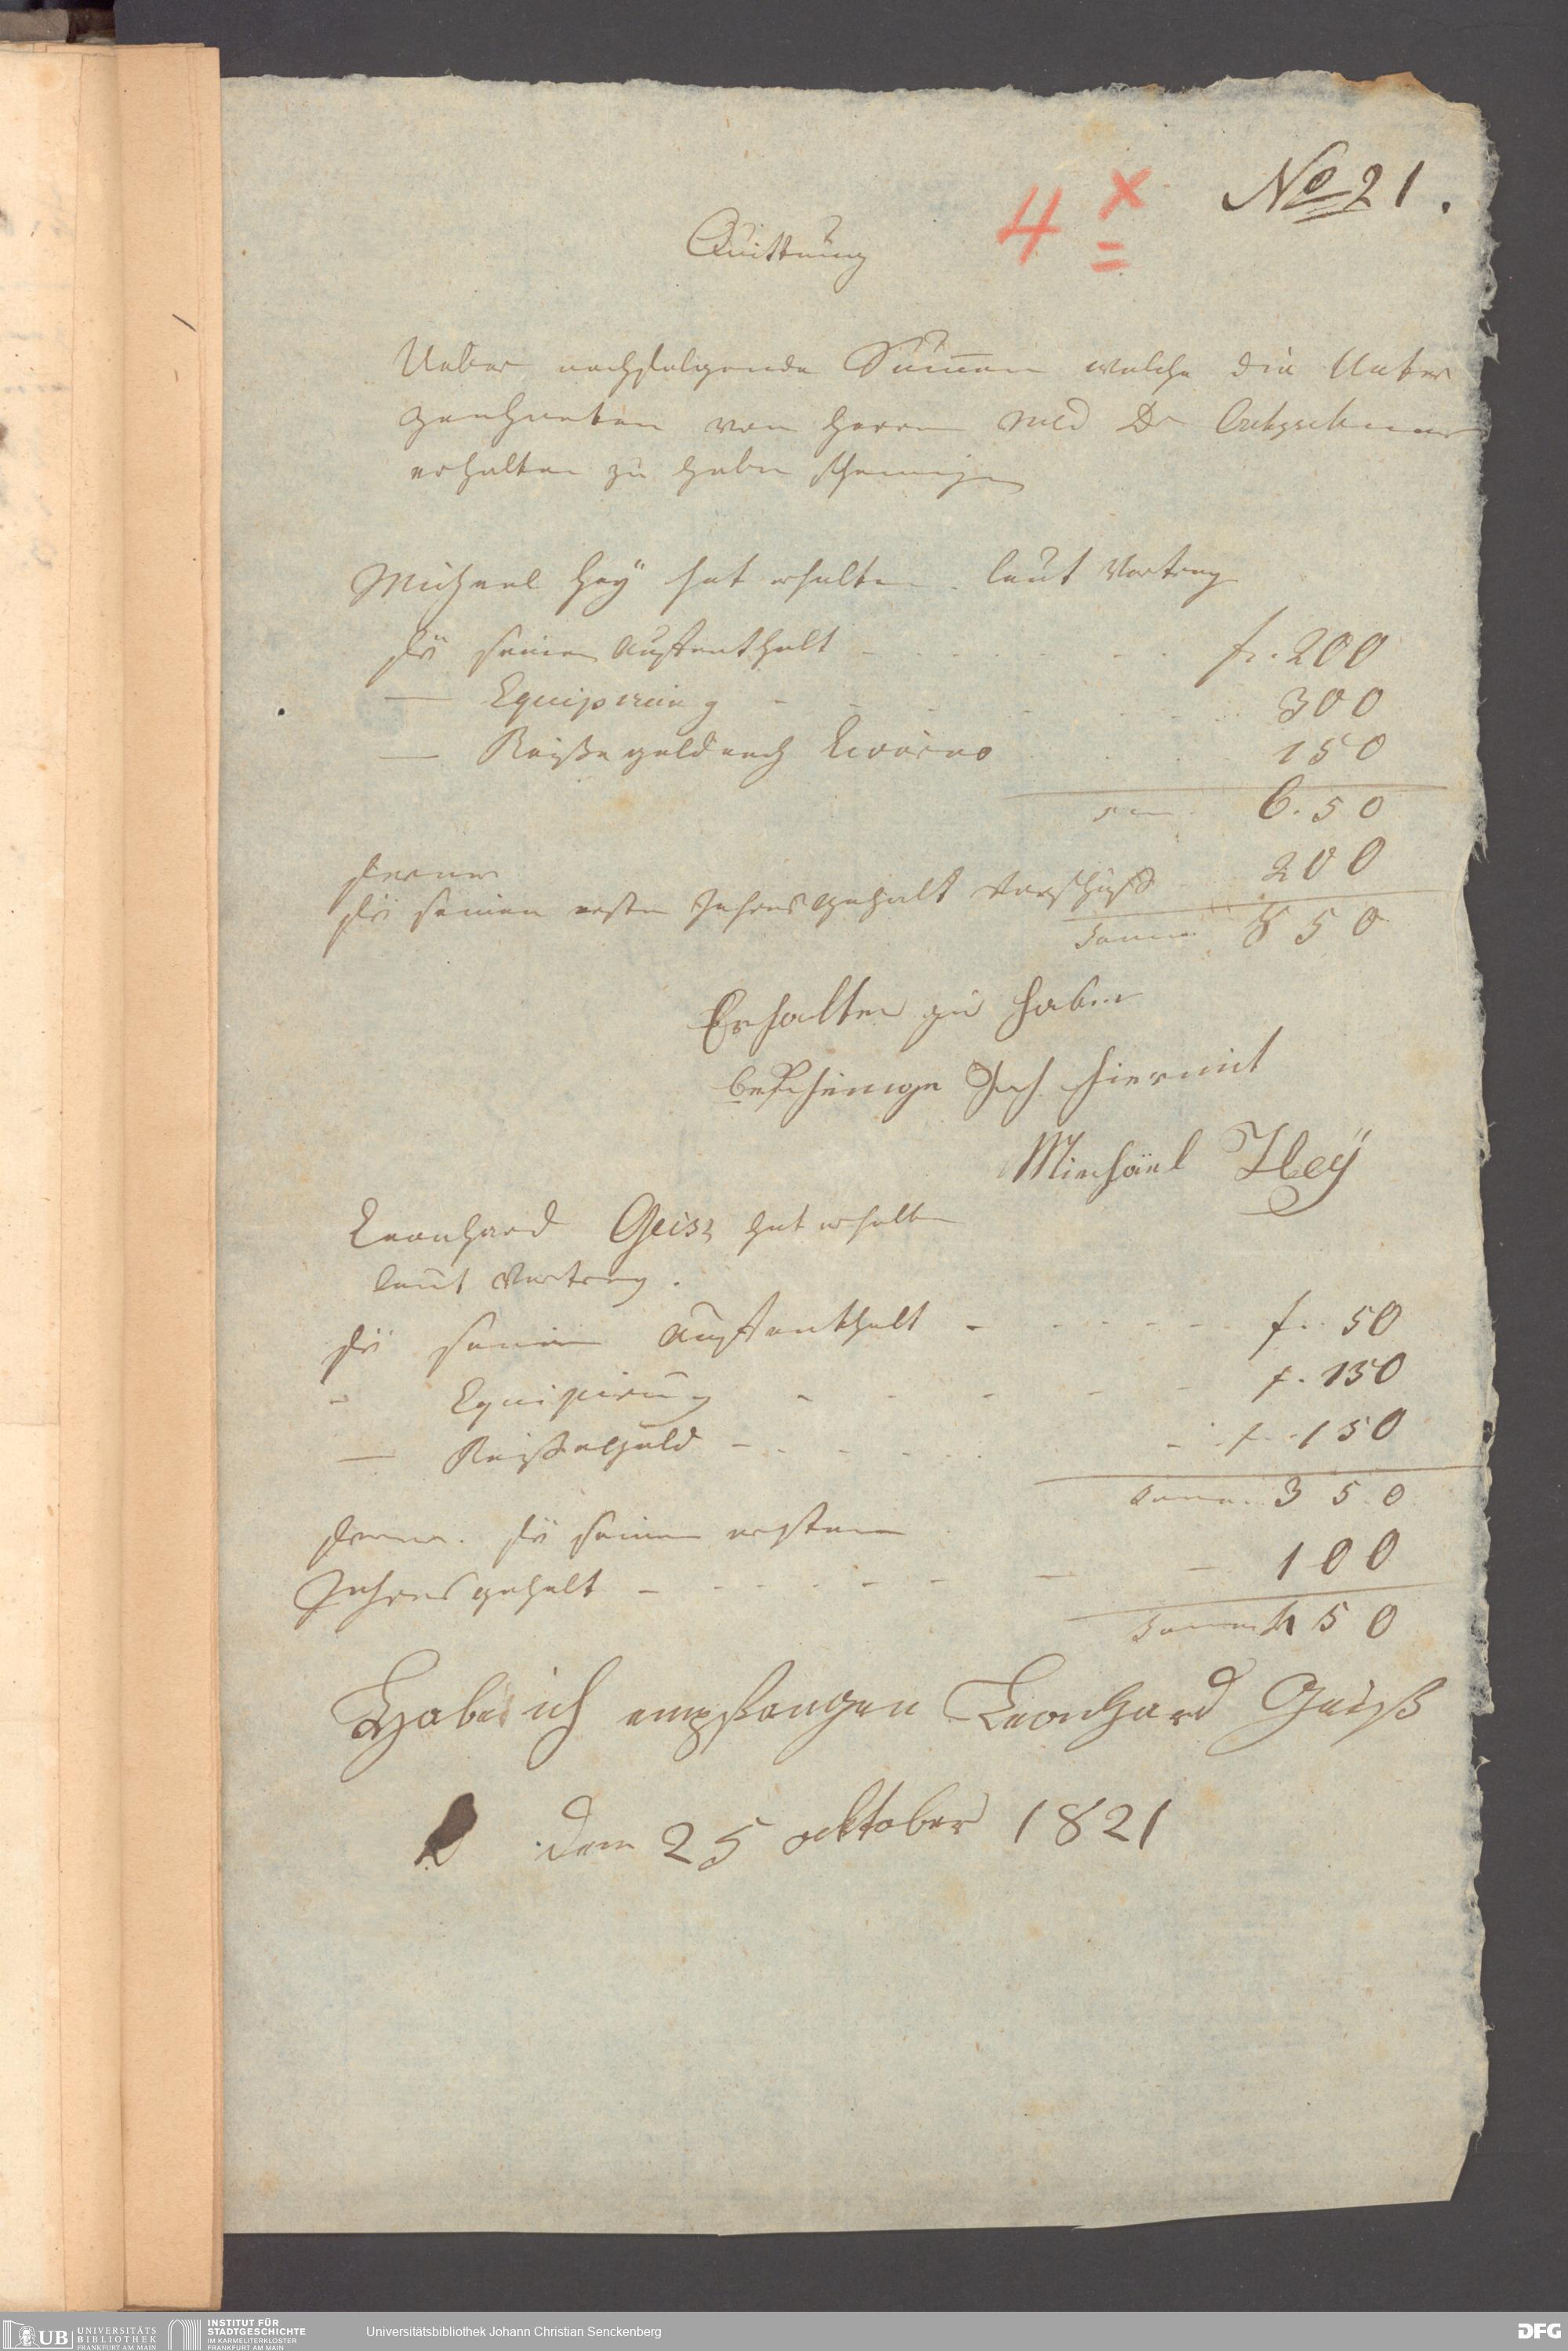 No 21.
4 x =
Quittung
Ueber nachfolgende Sum̅en welche die Unter
zeichneten von Herrn Med Dr Cretzschmar
erhalten zu haben scheinigen
Michael Hey hat erhalten laut Vertrag
für seinen Aufenthalt - - - - fr. 200
— Equipirung - - - - 300
— Reise geld nach Livorno - - 150
6.50
ferner
200
für seinen ersten Jahresgehalt Vorschuß
Summa 850
Erhalten zu haben
bescheinige Ich hiermit
Michael Heÿ
Leonhard Geiss hat erhalten
laut Vertrag.
für seinen Aufenthalt - - - - - f. 50
- Equipirung - - - - - f. 150
— Reisegeld - - - - f. 150
Summa 350
ferner. für seinen ersten
Jahresgehalt - - - - - 100
Summa 450
Habe ich empfangen Leonhard Geiß
den 25 oktober 1821
UB UNIVERSITÄTS
BIBLIOTHEK
FRANKFURT AM MAIN
INSTITUT FÜR
STADTGESCHICHTE
IM KARMELITERKLOSTER
FRANKFURT AM MAIN
Universitätsbibliothek Johann Christian Senckenberg
DFG